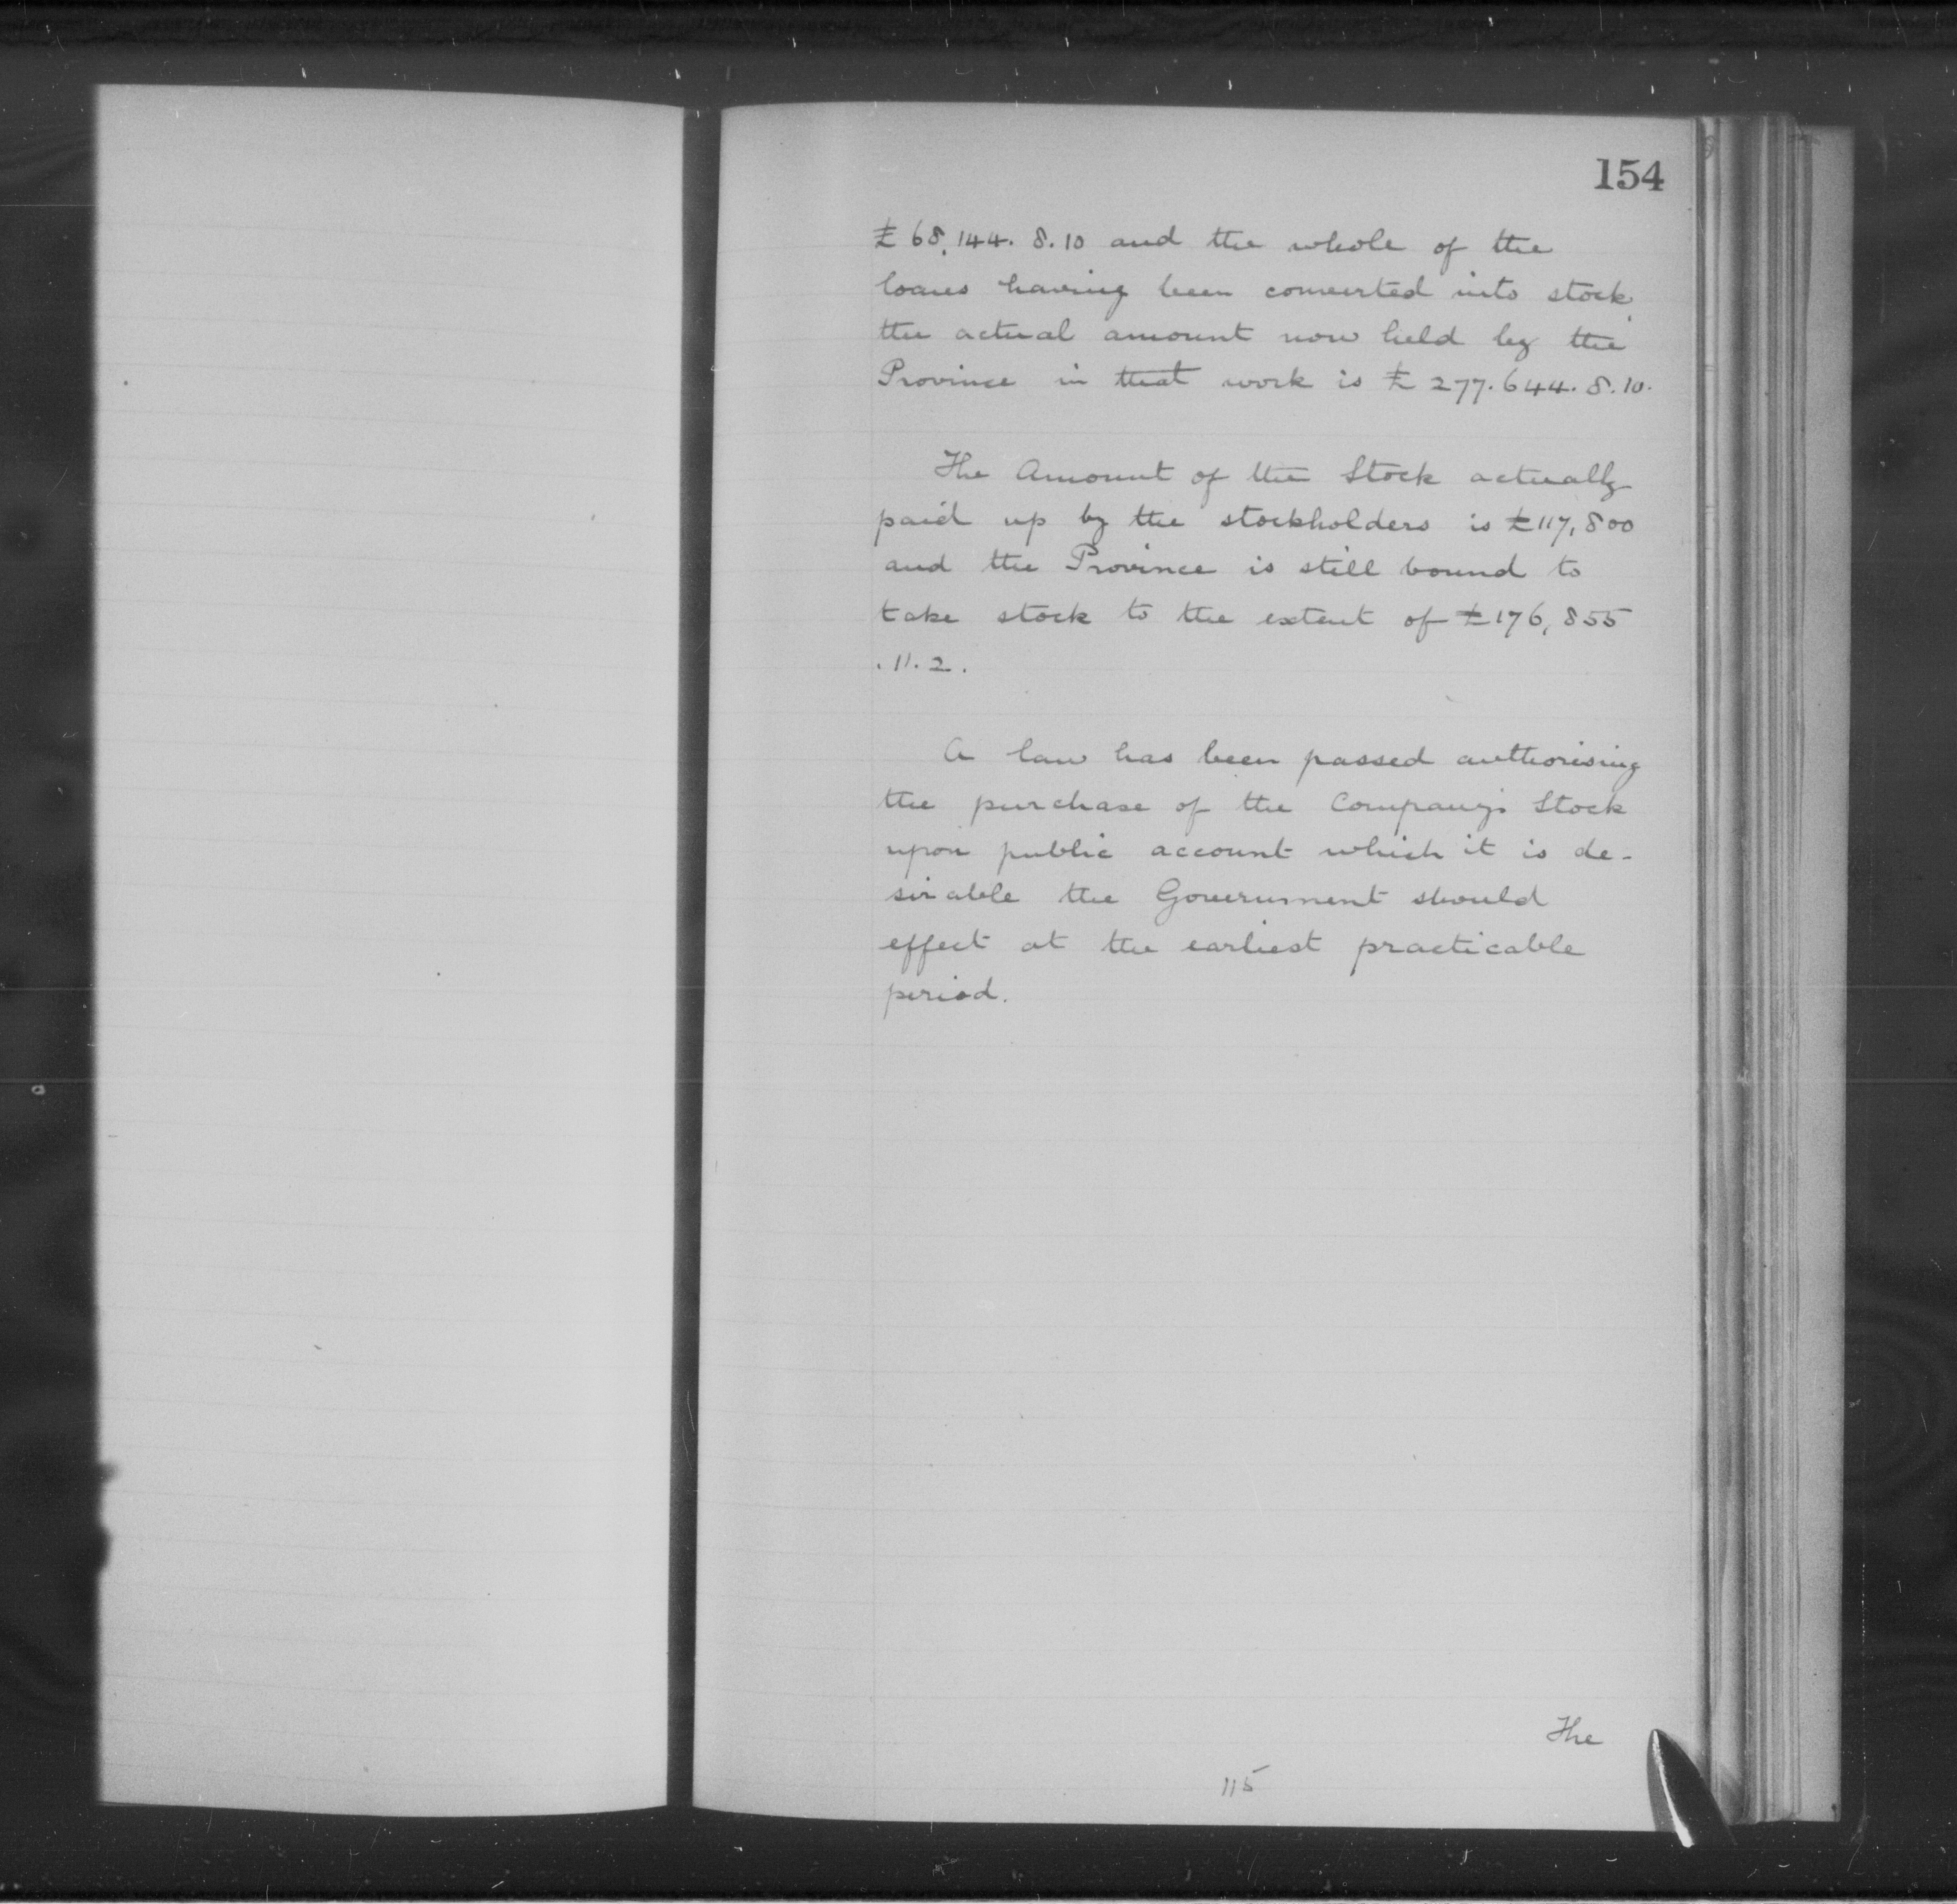 154
£68,144. 8.10 and the whole of the
loans having been converted into stock,
the actual amount now held by the
Province in that work is £277.644.8.10.
The Amount of the Stock actually
paid up by the stockholders is £117,800
and the Province is still bound to
take stock to the extent of £176,855
.11.2.
A law has been passed authorising
the purchase of the Company's Stock
upon public account which it is de-
sirable the Government should
effect at the earliest practicable
period.
The
115